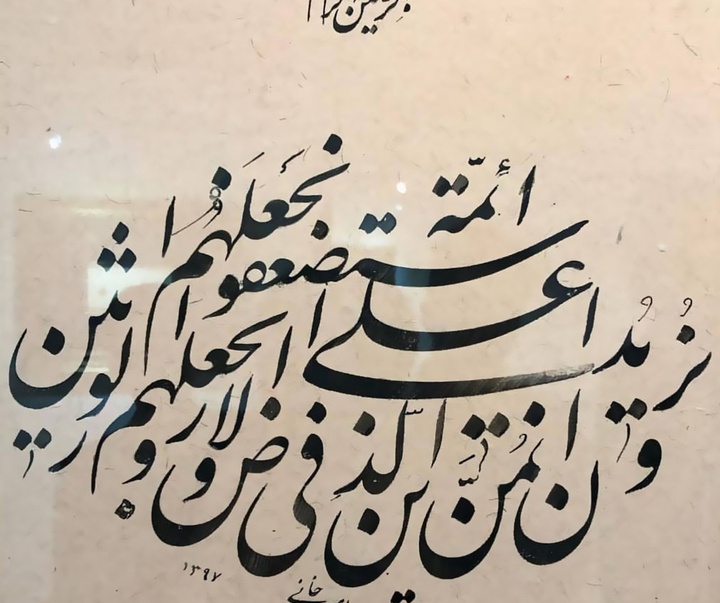 و نرید ان نمن علی الذین استضعفوا فی الارض و نجعلهم ائمة و نجعلهم الوارثین
۱۳۹۷
خانی